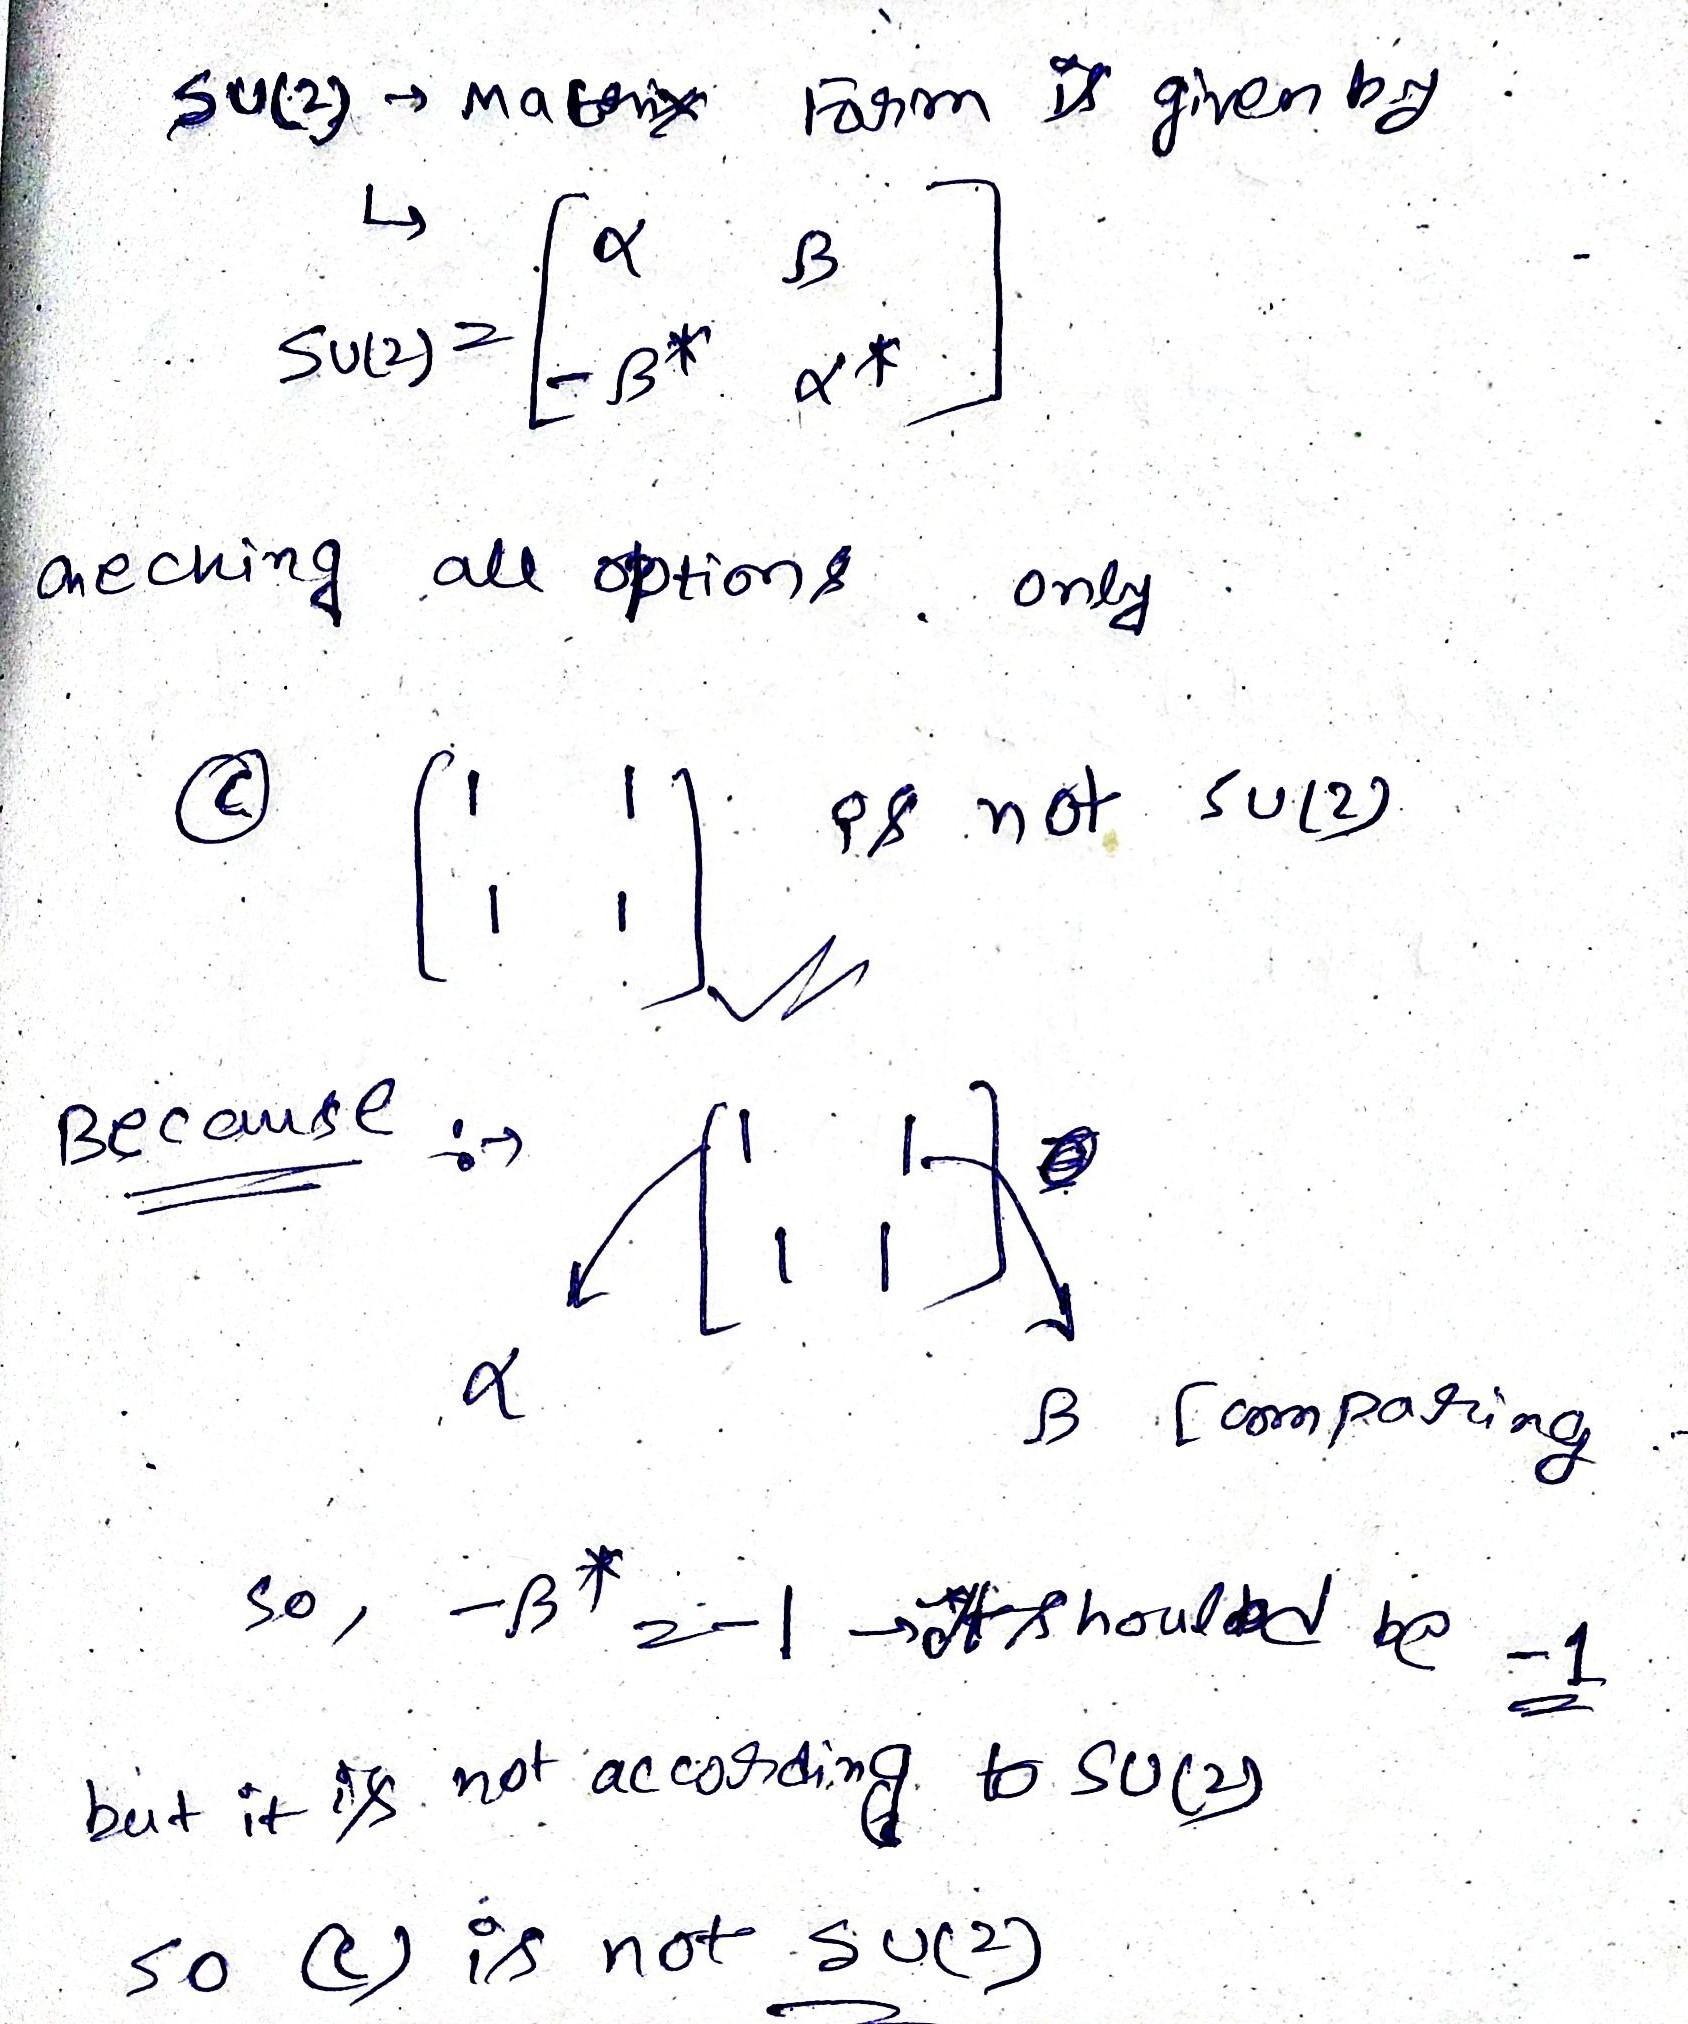 SU(2) → Matrix Form is given by
↳
SU(2) = [ α β
-β* α* ]
checking all options. only
(C) ( 1 1
1 1 ) is not SU(2)
Because :→ [ 1 1
1 1 ]
α β [comparing
so, -β* = -1 → It should be -1
but it is not according to SU(2)
so (C) is not SU(2)